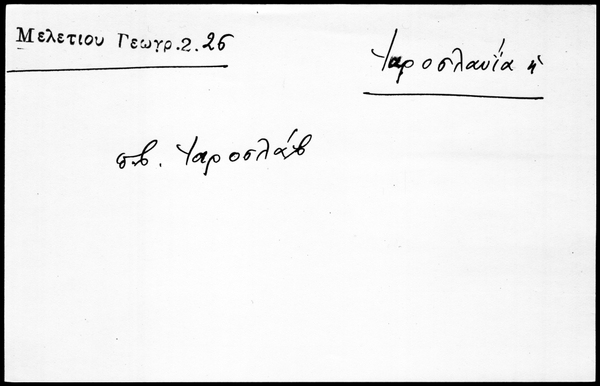 Μελετίου Γεωγρ. 2. 26
Ἰαροσλαυΐα ἡ
πβ. Ἰαροσλάβ